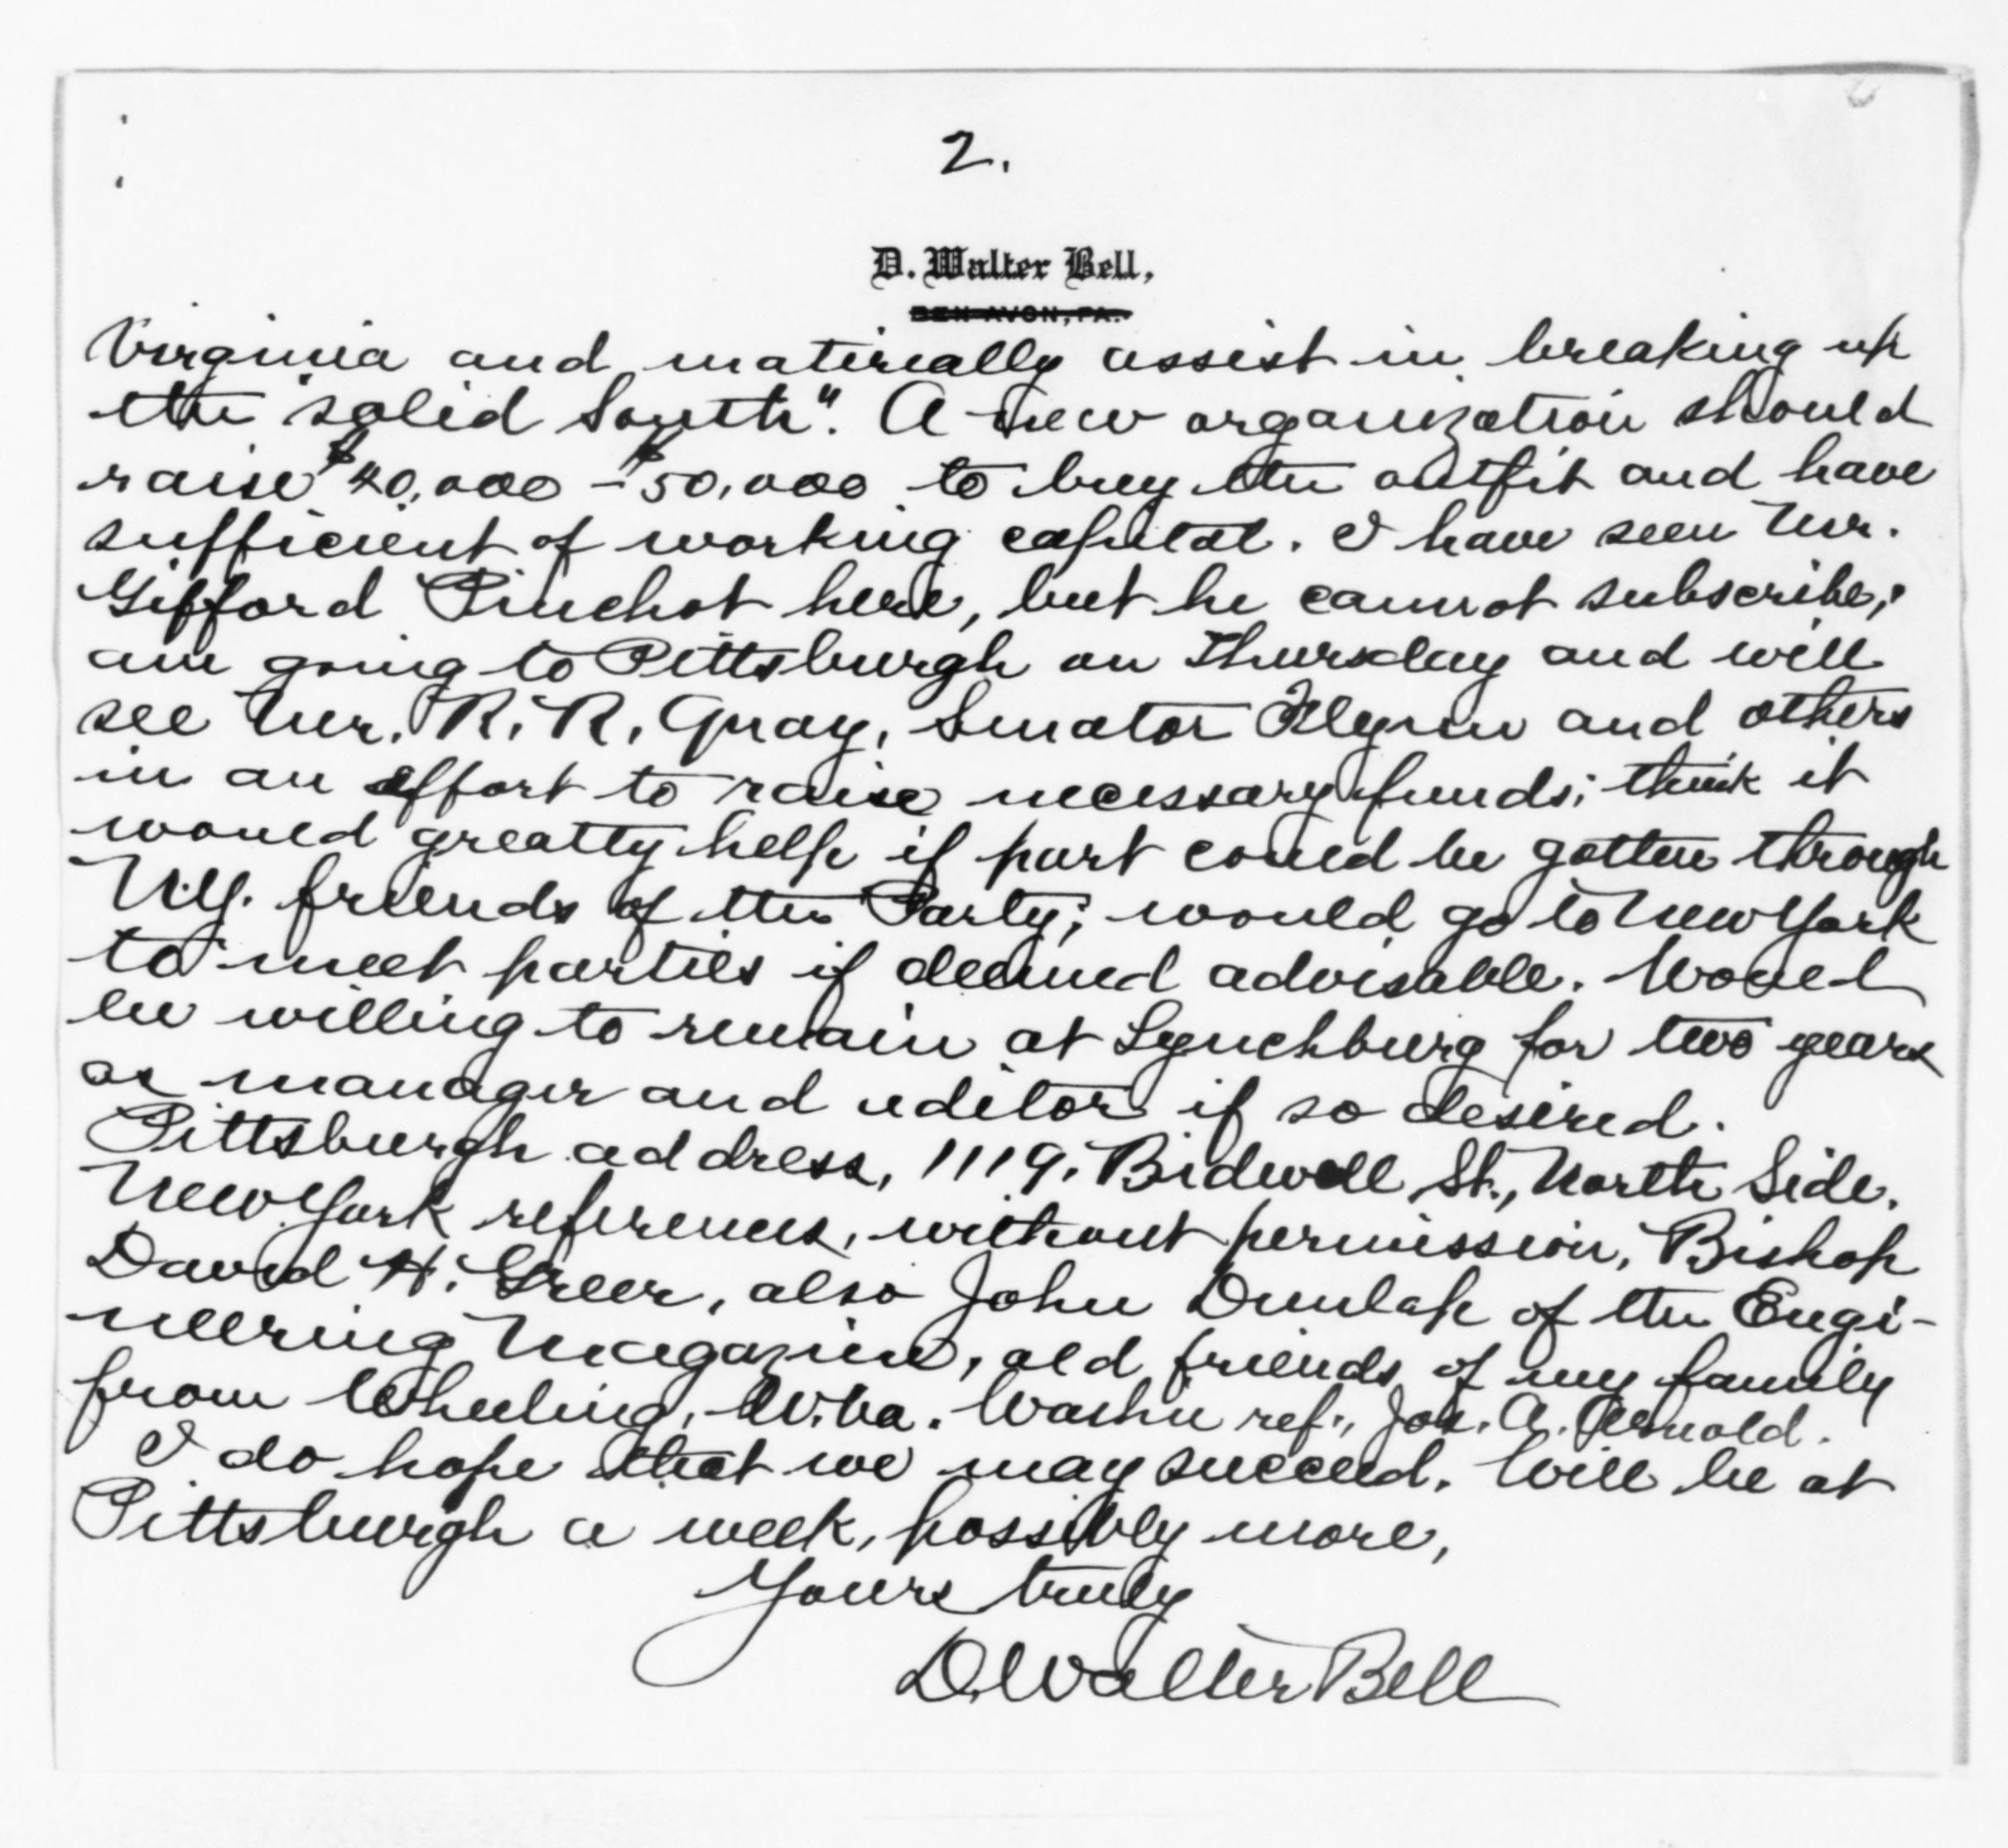 2.
D. Walter Bell,
BEN AVON, PA.
Virginia and materially assist in breaking up
the "solid South". A new organization should
raise $40,000 - $50,000 to buy the outfit and have
sufficient of working capital. I have seen Mr.
Gifford Pinchot here, but he cannot subscribe;
am going to Pittsburgh on Thursday and will
see Mr. R. R. Quay, Senator Flynn and others
in an effort to raise necessary funds; think it
would greatly help if part could be gotten through
N.Y. friends of the Party; would go to New York
to meet parties if deemed advisable. Would
be willing to remain at Lynchburg for two years
as manager and editor if so desired.
Pittsburgh address, 1119. Bidwell St., North Side.
New York references, without permission, Bishop
David H. Greer, also John Dunlap of the Engi-
neering Magazine, old friends of my family
from Wheeling, W.Va. Washn ref., Jos. A. Arnold.
I do hope that we may succeed. Will be at
Pittsburgh a week, possibly more,
Yours truly
D. Walter Bell